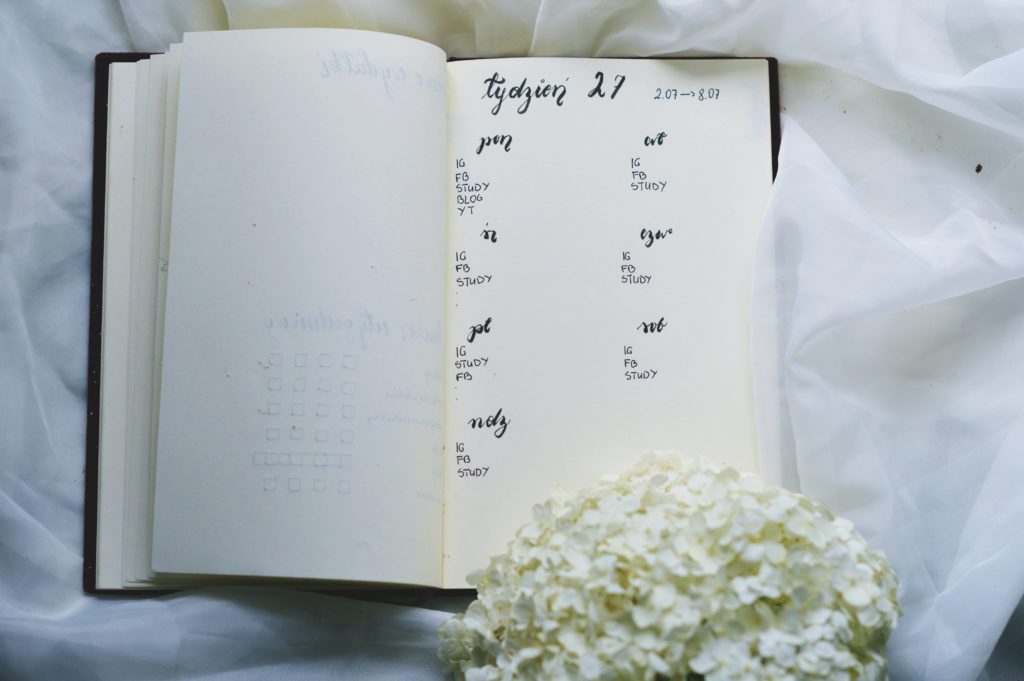 tydzień 27 2.07→8.07
pon
IG
FB
STUDY
BLOG
YT
wt
IG
FB
STUDY
śr
IG
FB
STUDY
czw
IG
FB
STUDY
pt
IG
STUDY
FB
sob
IG
FB
STUDY
ndz
IG
FB
STUDY